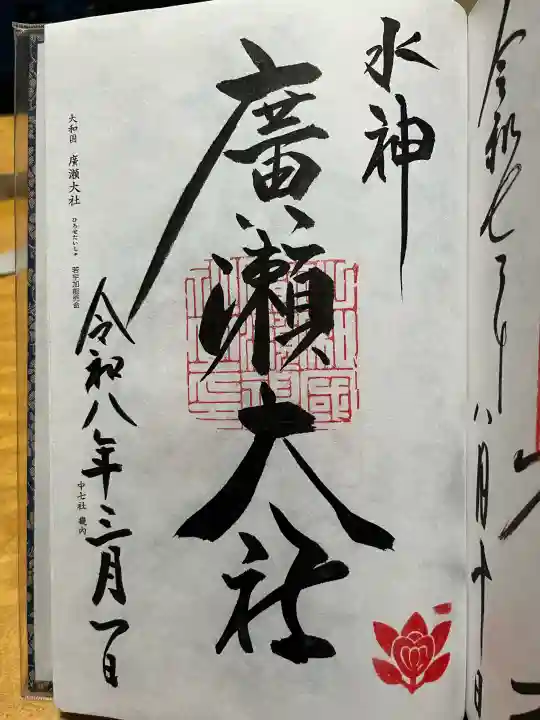 令和七年八月十日
水神
廣瀬大社
令和八年三月一日
大和国 廣瀬大社 ひろせたいしゃ 若宇加能売命
中七社 畿内